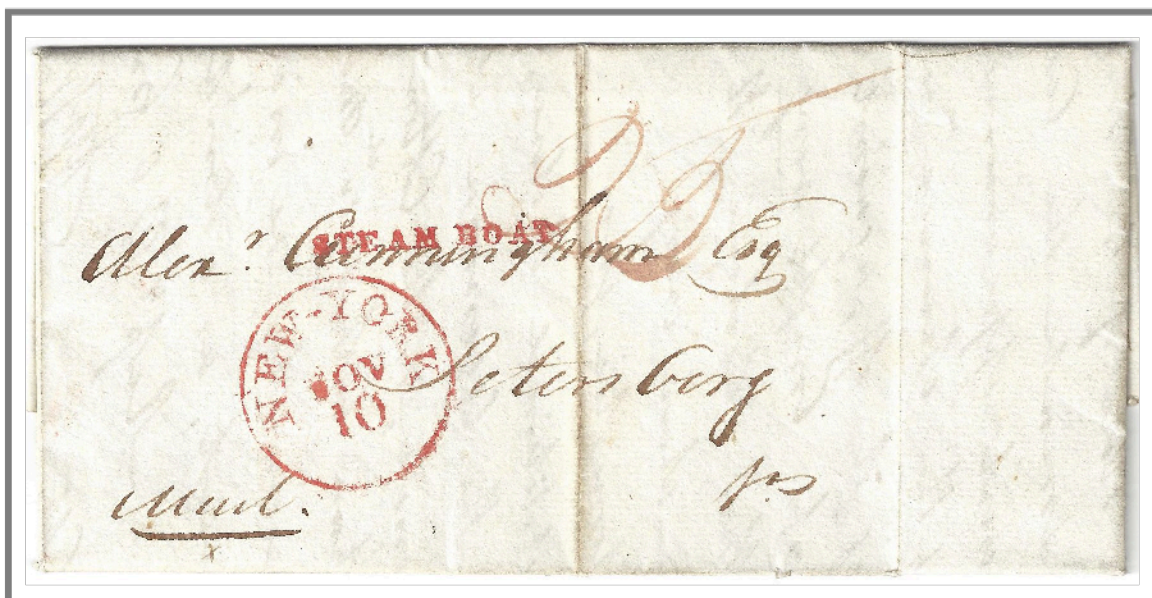 25
STEAM BOAT
Alexr. Cunningham Esq
NEW-YORK
NOV
10
Petersburg
Mail.